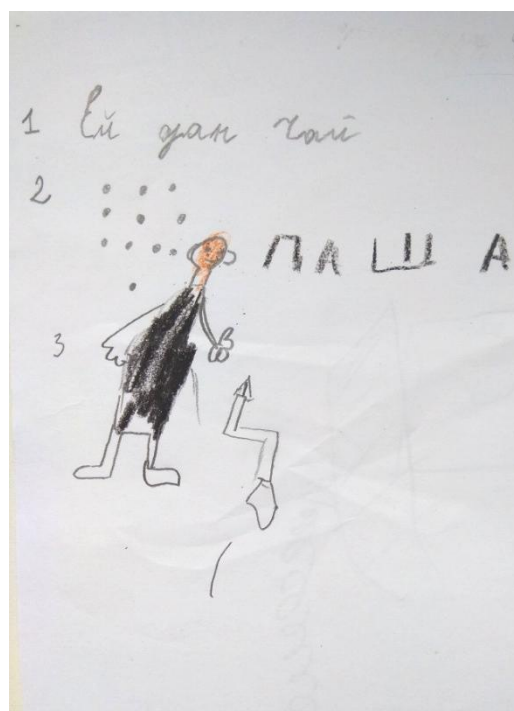 1 Ей дан чай
2
ПАША
3